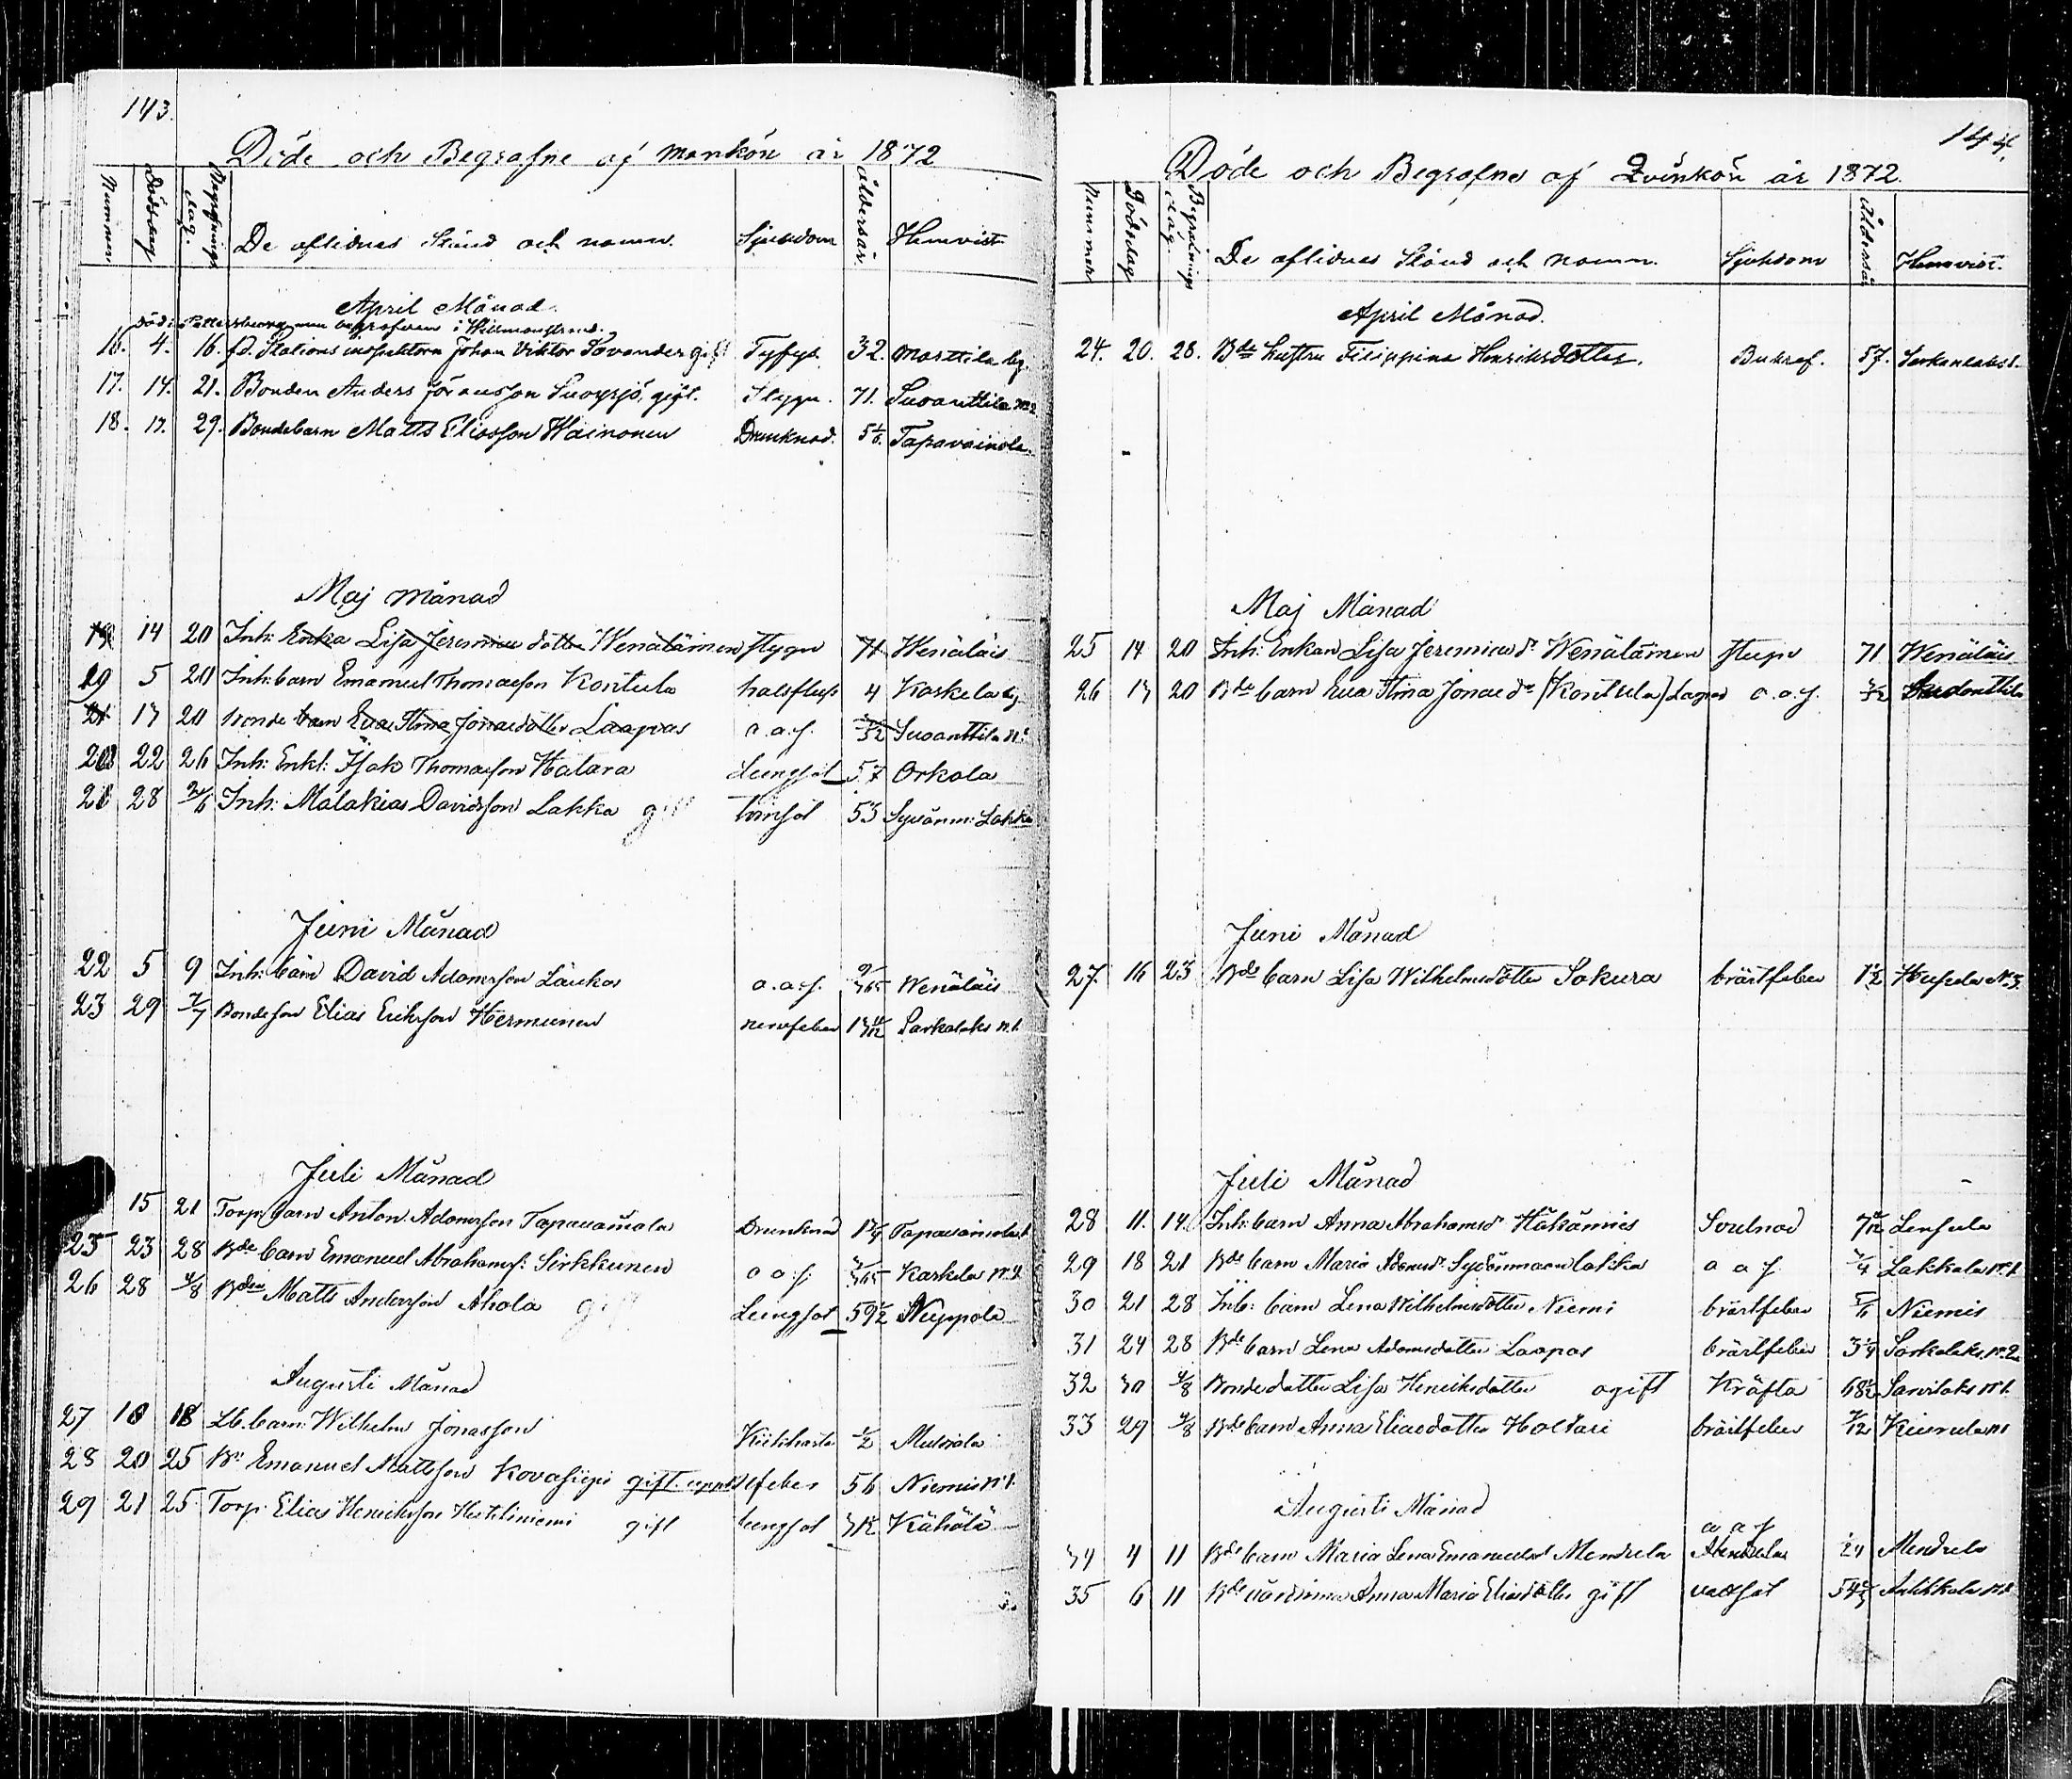 143.
Döde och Begrafne af mankön år 1872
Nummer Dödsdag Begrafnings dag. De aflidnes Stånd och namn. Sjukdom Åldersår. Hemvist
April Månad.
Död i Pettersburg men begrafven i Willmanstrand.
16. 4. 16. fd. Stations inspektorn Johan Viktor Savander gift Tyfys. 32. Marttila by.
17. 14. 21. Bonden Anders Göransson Suoysjö, gift. Stygn. 71. Suoanttila No2
18. 17. 29. Bondebarn Matts Eliasson Hainonen Drunknad. 5 1/6. Tapavainola.
Maj månad
19 14 20 Inh: Enka Lisa Jeremiae dotter Wenäläinen stygn 71 Wenäläis
19 5 20 Inh: barn Emanuel Thomasson Kontula halsfluss 4 Kaskela by
21 17 20 bonde barn Eva Stina Jonaedotter Laapas o.a.s. Suoanttila
20 22 26 Inh: Enkl: Isak Thomasson Hatara Lungsot 57 Orkola
21 28 2/6 Inh: Malakias Davidsson Lakka gift 53 Sysänm: Lakka
Juni Månad
22 5 9 Inh: barn David Adamsson Laukas o.a.s. 9/365 Wenäläis
23 29 7/7 Bondeson Elias Eriksson Hermunen nervfeber 17 Sarkalaks n.1.
Juli Månad
15 21 Torp: barn Anton Adamsson Tapavainola Drunknad 1 3/4 Tapavainola
25 23 28 Bde barn Emanuel Abrahamss: Sirkkunen o a s. Kaskela
26 28 4/8 Bden Matts Andersson Ahola gift Lungsot 59 1/2 Nuppola
Augusti Månad
27 10 18 Lb. barn: Wilhelm Jonasson Kikhosta 1/2 Mulviala
28 20 25 Bn Emanuel Mattsson Kovasiipi gift feber 56 Niemis No1.
29 21 25 Torp. Elias Henriksson Hietiliniemi gift lungsot Kähälä
144.
Döde och Begrafne af Qvinkön år 1872.
Nummer Dödsdag Begrafnings dag De aflidnes Stånd och namn. Sjukdom Åldersår Hemvist.
April Månad.
24. 20. 28. Bde hustru Filippina Henriksdotter. Bukref. 57. Sarkalaks 1.
Maj Månad
25 14 20 Inh: Enkan Lisa Jeremiaed: Wenäläinen Stygn 71 Wenäläis
26 17 20 Bde barn Eva Stina Jonaedr (Kontula) Lapas o.a.s. Suoanttila
Juni Månad
27. 16 23 Bde barn Lisa Wilhelmsdotter Sakura bröstfeber 1 1/2 Hupela No3.
Juli Månad
28 11. 14. Inh: barn Anna Abrahamsdr Häkämies Svulnad 7/12 Lensula
29 18 21 Bde barn Maria Adamsdr Sydänmaanlakka o a s. 3/4 Lakkala No1.
30 21 28 Inh: barn Lena Wilhelmsdotter Niemi bröstfeber Niemis
31 24 28 Bde barn Lena Adamsdotter Laapas bröstfeber 3 Sarkalaks No2
32 30 4/8 Bondedotter Lisa Henriksdotter ogift Kräfta 68 1/2 Sarvilaks No1.
33 29 4/8 Bde barn Anna Eliaedotter Holtari bröstfeber 7/12 Kiurula
Augusti Månad
o a s
34 4 11 Bde barn Maria Lena Emanuelsd Mendrela Mendrela
35 6 11 Bde värdinna Anna Maria Eliaedotter gift vattsot 54 Anttikkala